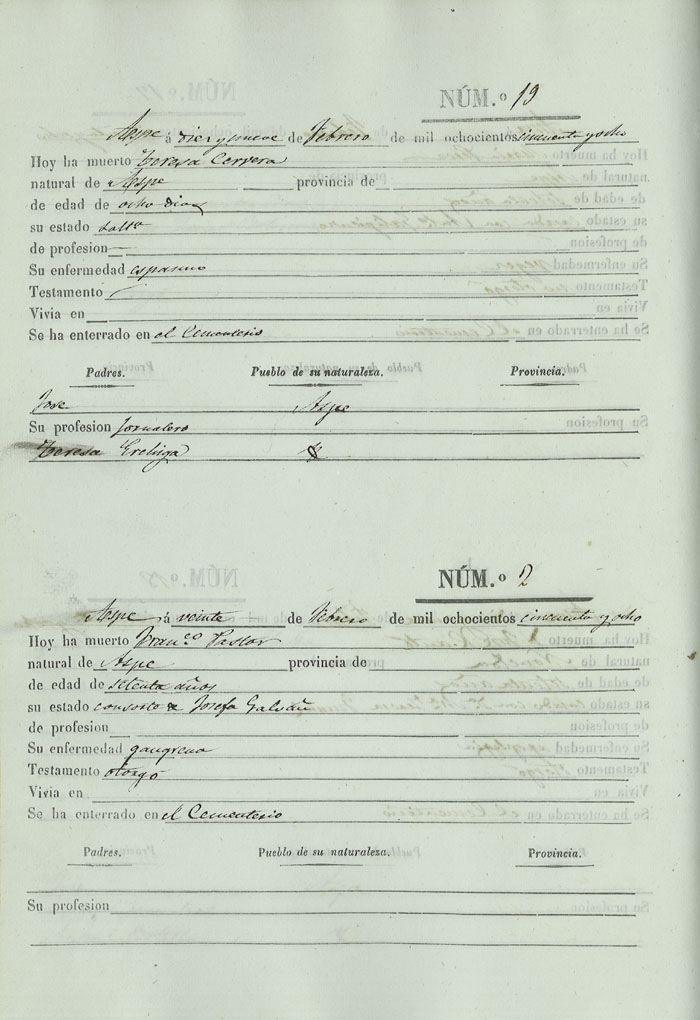 NÚM.º 19
Aspe á diez y nueve de Febrero de mil ochocientos cincuenta y ocho
Hoy ha muerto Teresa Cervera
natural de Aspe provincia de
de edad de ocho dias
su estado
de profesion
Su enfermedad espasmo
Testamento
Vivia en
Se ha enterrado en el Cementerio
Padres. Pueblo de su naturaleza. Provincia.
Jose Aspe
Su profesion Jornalero
Teresa
NÚM.º 2
Aspe á veinte de Febrero de mil ochocientos cincuenta y ocho
Hoy ha muerto Franco Pastor
natural de Aspe provincia de
de edad de setenta años
su estado consorte de Josefa Galvañ
de profesion
Su enfermedad gangrena
Testamento otorgó
Vivia en
Se ha enterrado en el Cementerio
Padres. Pueblo de su naturaleza. Provincia.
Su profesion